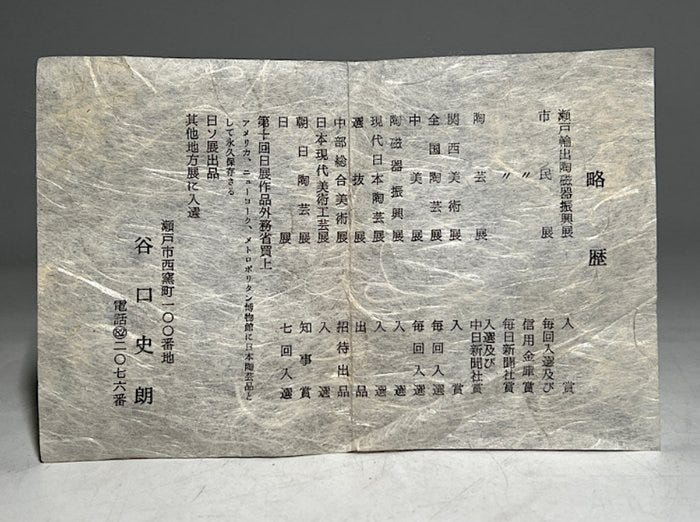 略歴
瀬戸輸出陶磁器振興展 入賞
市民展 毎回入選及び
〃 信用金庫賞
〃 毎日新聞社賞
陶芸展 入選及び
中日新聞社賞
関西美術展 入賞
全国陶芸展 毎回入選
中美展 毎回入選
陶磁器振興展 入選
現代日本陶芸展 入選
選抜展 出品
中部総合美術展 招待出品
日本現代美術工芸展 入選
朝日陶芸展 知事賞
日展 七回入選
第十回日展作品外務省買上
アメリカ、ニューヨーク、メトロポリタン博物館に日本陶芸品と
して永久保存さる
日ソ展出品
其他地方展に入選
瀬戸市西窯町一〇〇番地
谷口史朗
電話二〇七六番